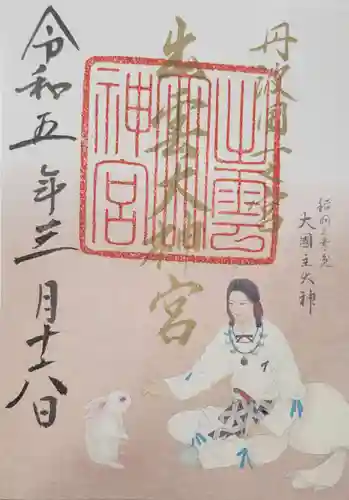 丹波國一之宮
出雲大神宮
令和五年三月十八日
出雲大神宮
大國主大神